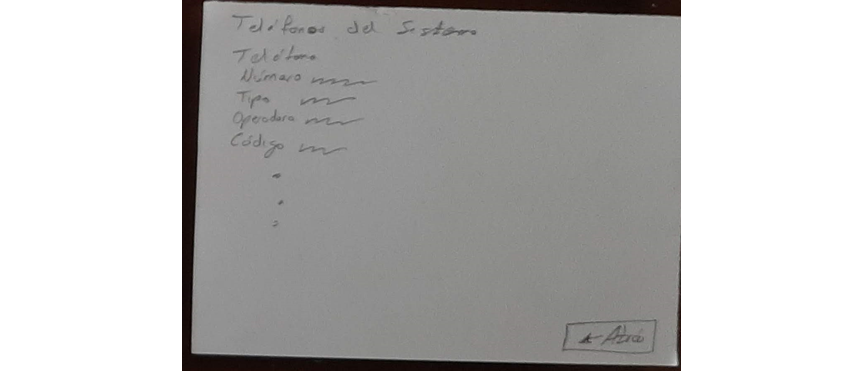 Teléfonos del Sistema
Teléfono
Número
Tipo
Operadora
Código
← Atrás